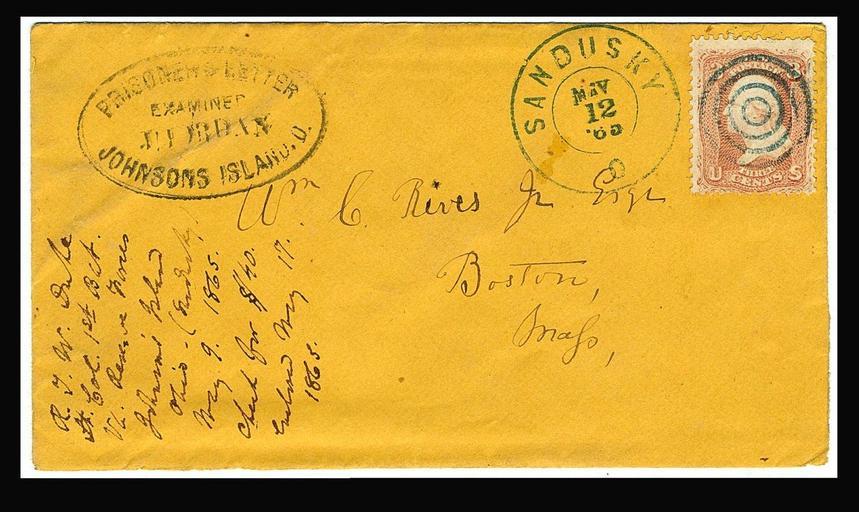 PRISONERS LETTER
EXAMINED
JOHNSONS ISLAND. O.
SANDUSKY
MAY
12
'65
O
U S
THREE
CENTS
Wm C. Rives Jr Esqr
Boston,
Mass,
R. T. W.
Lt. Col. 1st Bat.
Va. Reserve Forces
Johnson's Island
Ohio - (Sandusky
May 9. 1865.
Check for $40.
May 17.
1865.